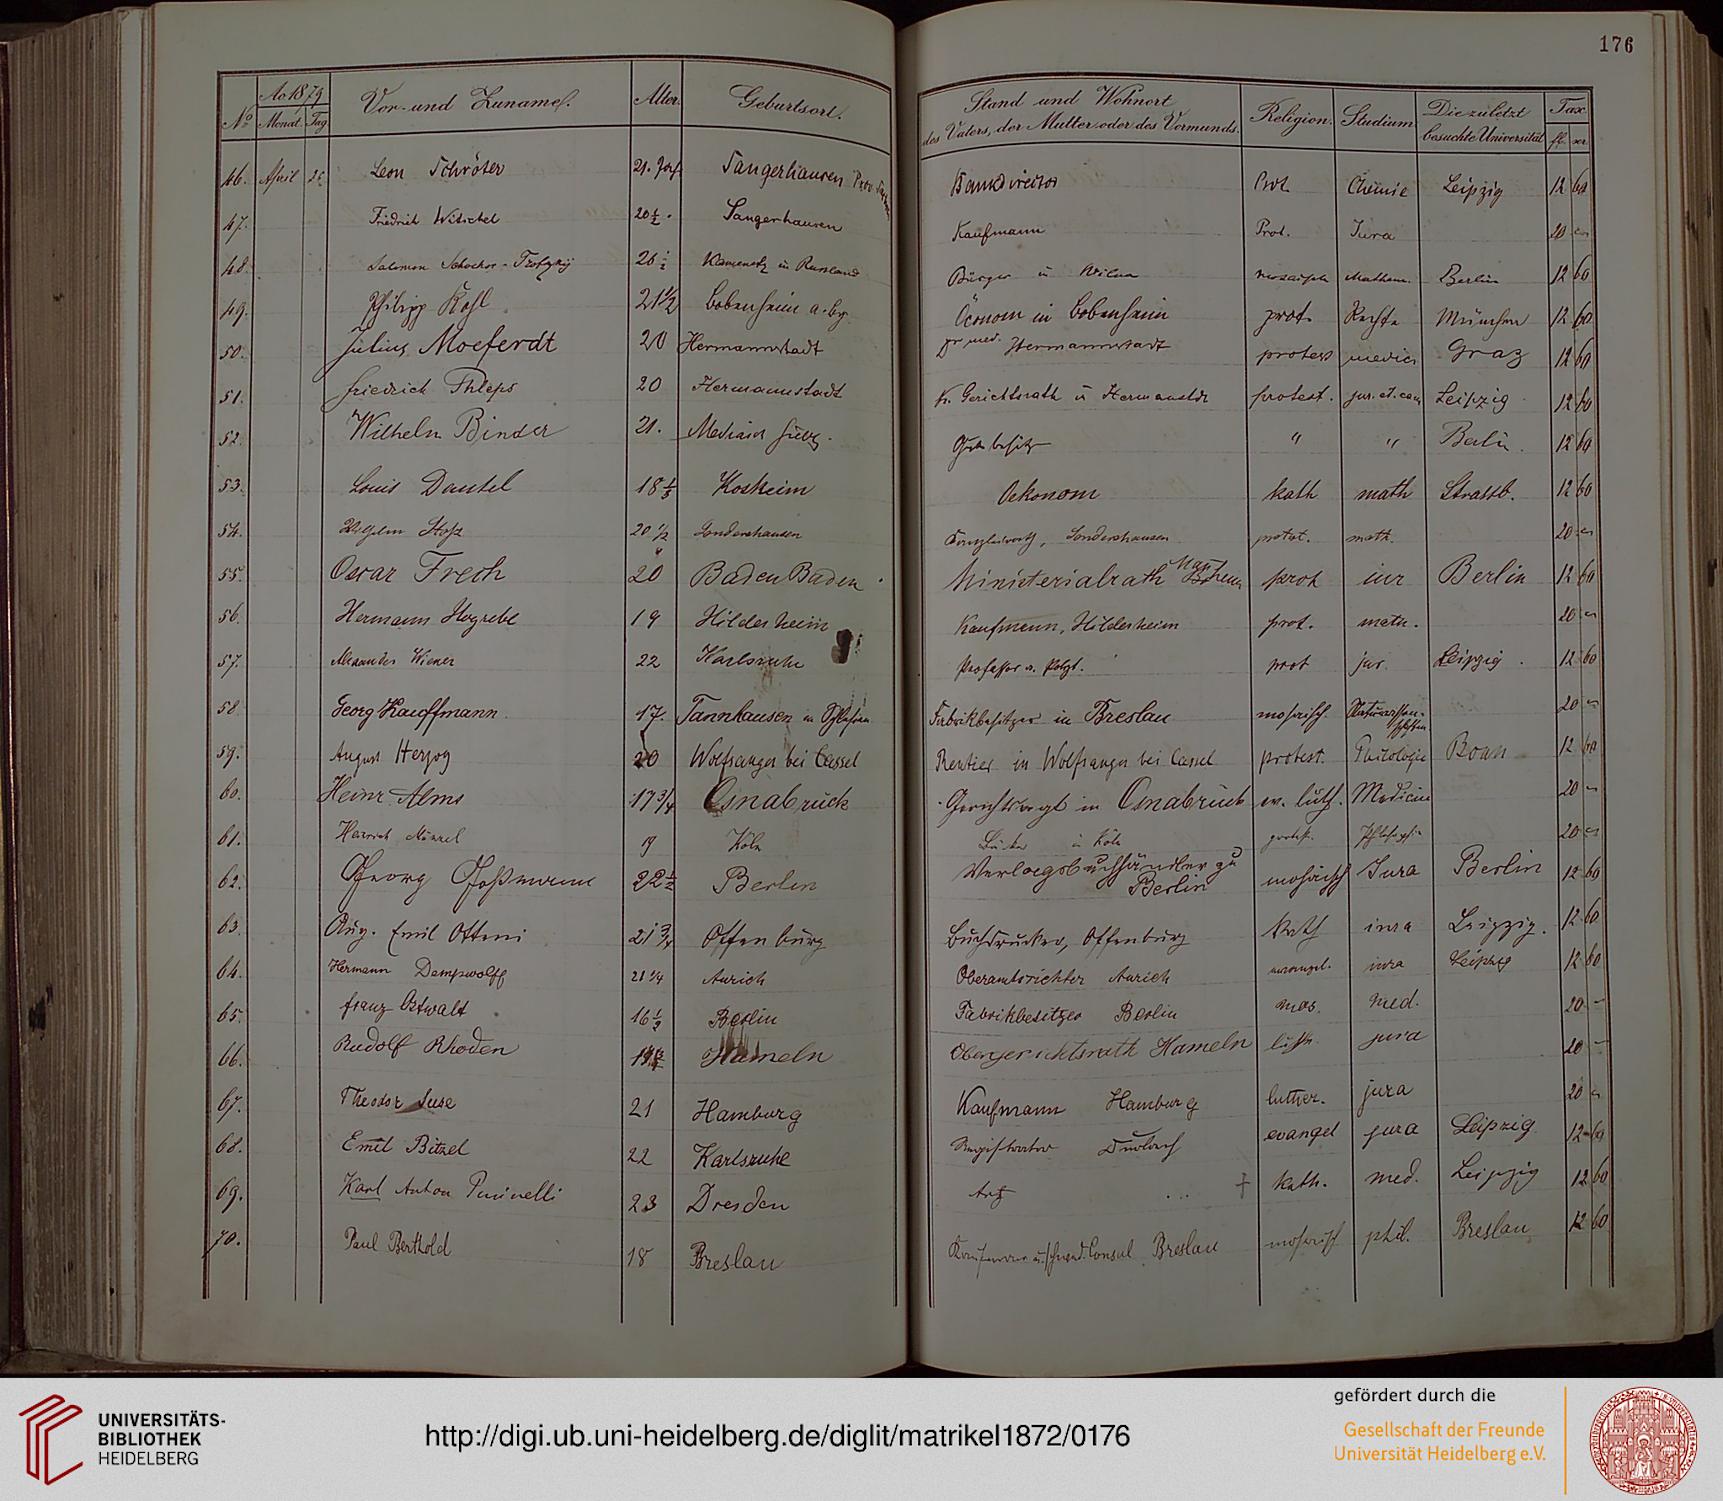 176
No. Ao 1879 Monat. Tag Vor- und Zuname. Alter. Geburtsort. Stand und Wohnort des Vaters, der Mutter oder des Vormunds. Religion. Studium Die zuletzt besuchte Universität Tax. fl. xr.
46. April Leon Schröter 21. Sangerhausen Prov. Bankdirector Prot. Chemie Leipzig 12 60
47. Friedrich 20½ Sangerhausen Kaufmann Prot. Jura 20
48. Salomon 26½ in Russland Bürger u Wilna mosaisch Mathem. Berlin 12 60
49. Philipp Kohl 21½ Bobenheim a. Bg. Öconom in Bobenheim prot. Rechte München 12 60
50. Julius Moeferdt 20 Hermannstadt Dr med. Hermannstadt protest medicin Graz 12 60
51. Friedrich Phleps 20 Hermannstadt K. Gerichtsrath Hermannstdt protest. jur. et. cam Leipzig 12 60
52. Wilhelm Binder 21. Mediasch Gutsbesitzer " " Berlin 12 60
53. Louis Dantel 18 Kostheim Oekonom kath math Strassb. 12 60
54. Wilhelm 20 1/2 Sondershausen Sondershausen protest. math. 20
55. Oscar Frech 20 Baden Baden Ministerialrath prot iur Berlin 12 60
56. Hermann Hogrebe 19 Hildesheim Kaufmann, Hildesheim prot. math. 20
57. Alexander Wiener 22 Karlsruhe Professor a. Polyt. prot jur. Leipzig 12 60
58. Georg Kauffmann 17. Tannhausen in Schlesien Fabrikbesitzer in Breslau mosaisch Naturwissenschaften 20
59. August Herzog 20 Wolfsanger bei Cassel Rentier in Wolfsanger bei Cassel protest. Philologie Bonn 12 60
60. Heinr. Alms 17 3/4 Osnabrück Gerichtsvogt in Osnabrück ev. luth. Medicin 20
61. Heinrich 19 Köln Köln protest. Philosophie 20
62. Georg 22½ Berlin Verlagsbuchhändler zu Berlin mosaisch Jura Berlin 12 60
63. Aug. Emil Otteni 21 3/4 Offenburg Buchdrucker, Offenburg Kath iura Leipzig. 12 60
64. Hermann Dempwolff 21 1/4 Aurich Oberamtsrichter Aurich iura Leipzig 12 60
65. Franz Ostwalt 16½ Berlin Fabrikbesitzer Berlin mos. med. 20 –
66. Rudolf Rhoden Hameln Obergerichtsrath Hameln luth. jura 20 –
67. Theodor Suse 21 Hamburg Kaufmann Hamburg luther. jura 20
68. Emil Bitzel 22 Karlsruhe Registrator Durlach evangel jura Leipzig 12 60
69. Karl Anton Puinelli 23 Dresden Arzt † kath. med. Leipzig 12 60
70. Paul Berthold 18 Breslau Kaufmann u. schwed. Consul Breslau mosaisch phil. Breslau 12 60
UNIVERSITÄTS-
BIBLIOTHEK
HEIDELBERG
http://digi.ub.uni-heidelberg.de/diglit/matrikel1872/0176
gefördert durch die
Gesellschaft der Freunde
Universität Heidelberg e.V.